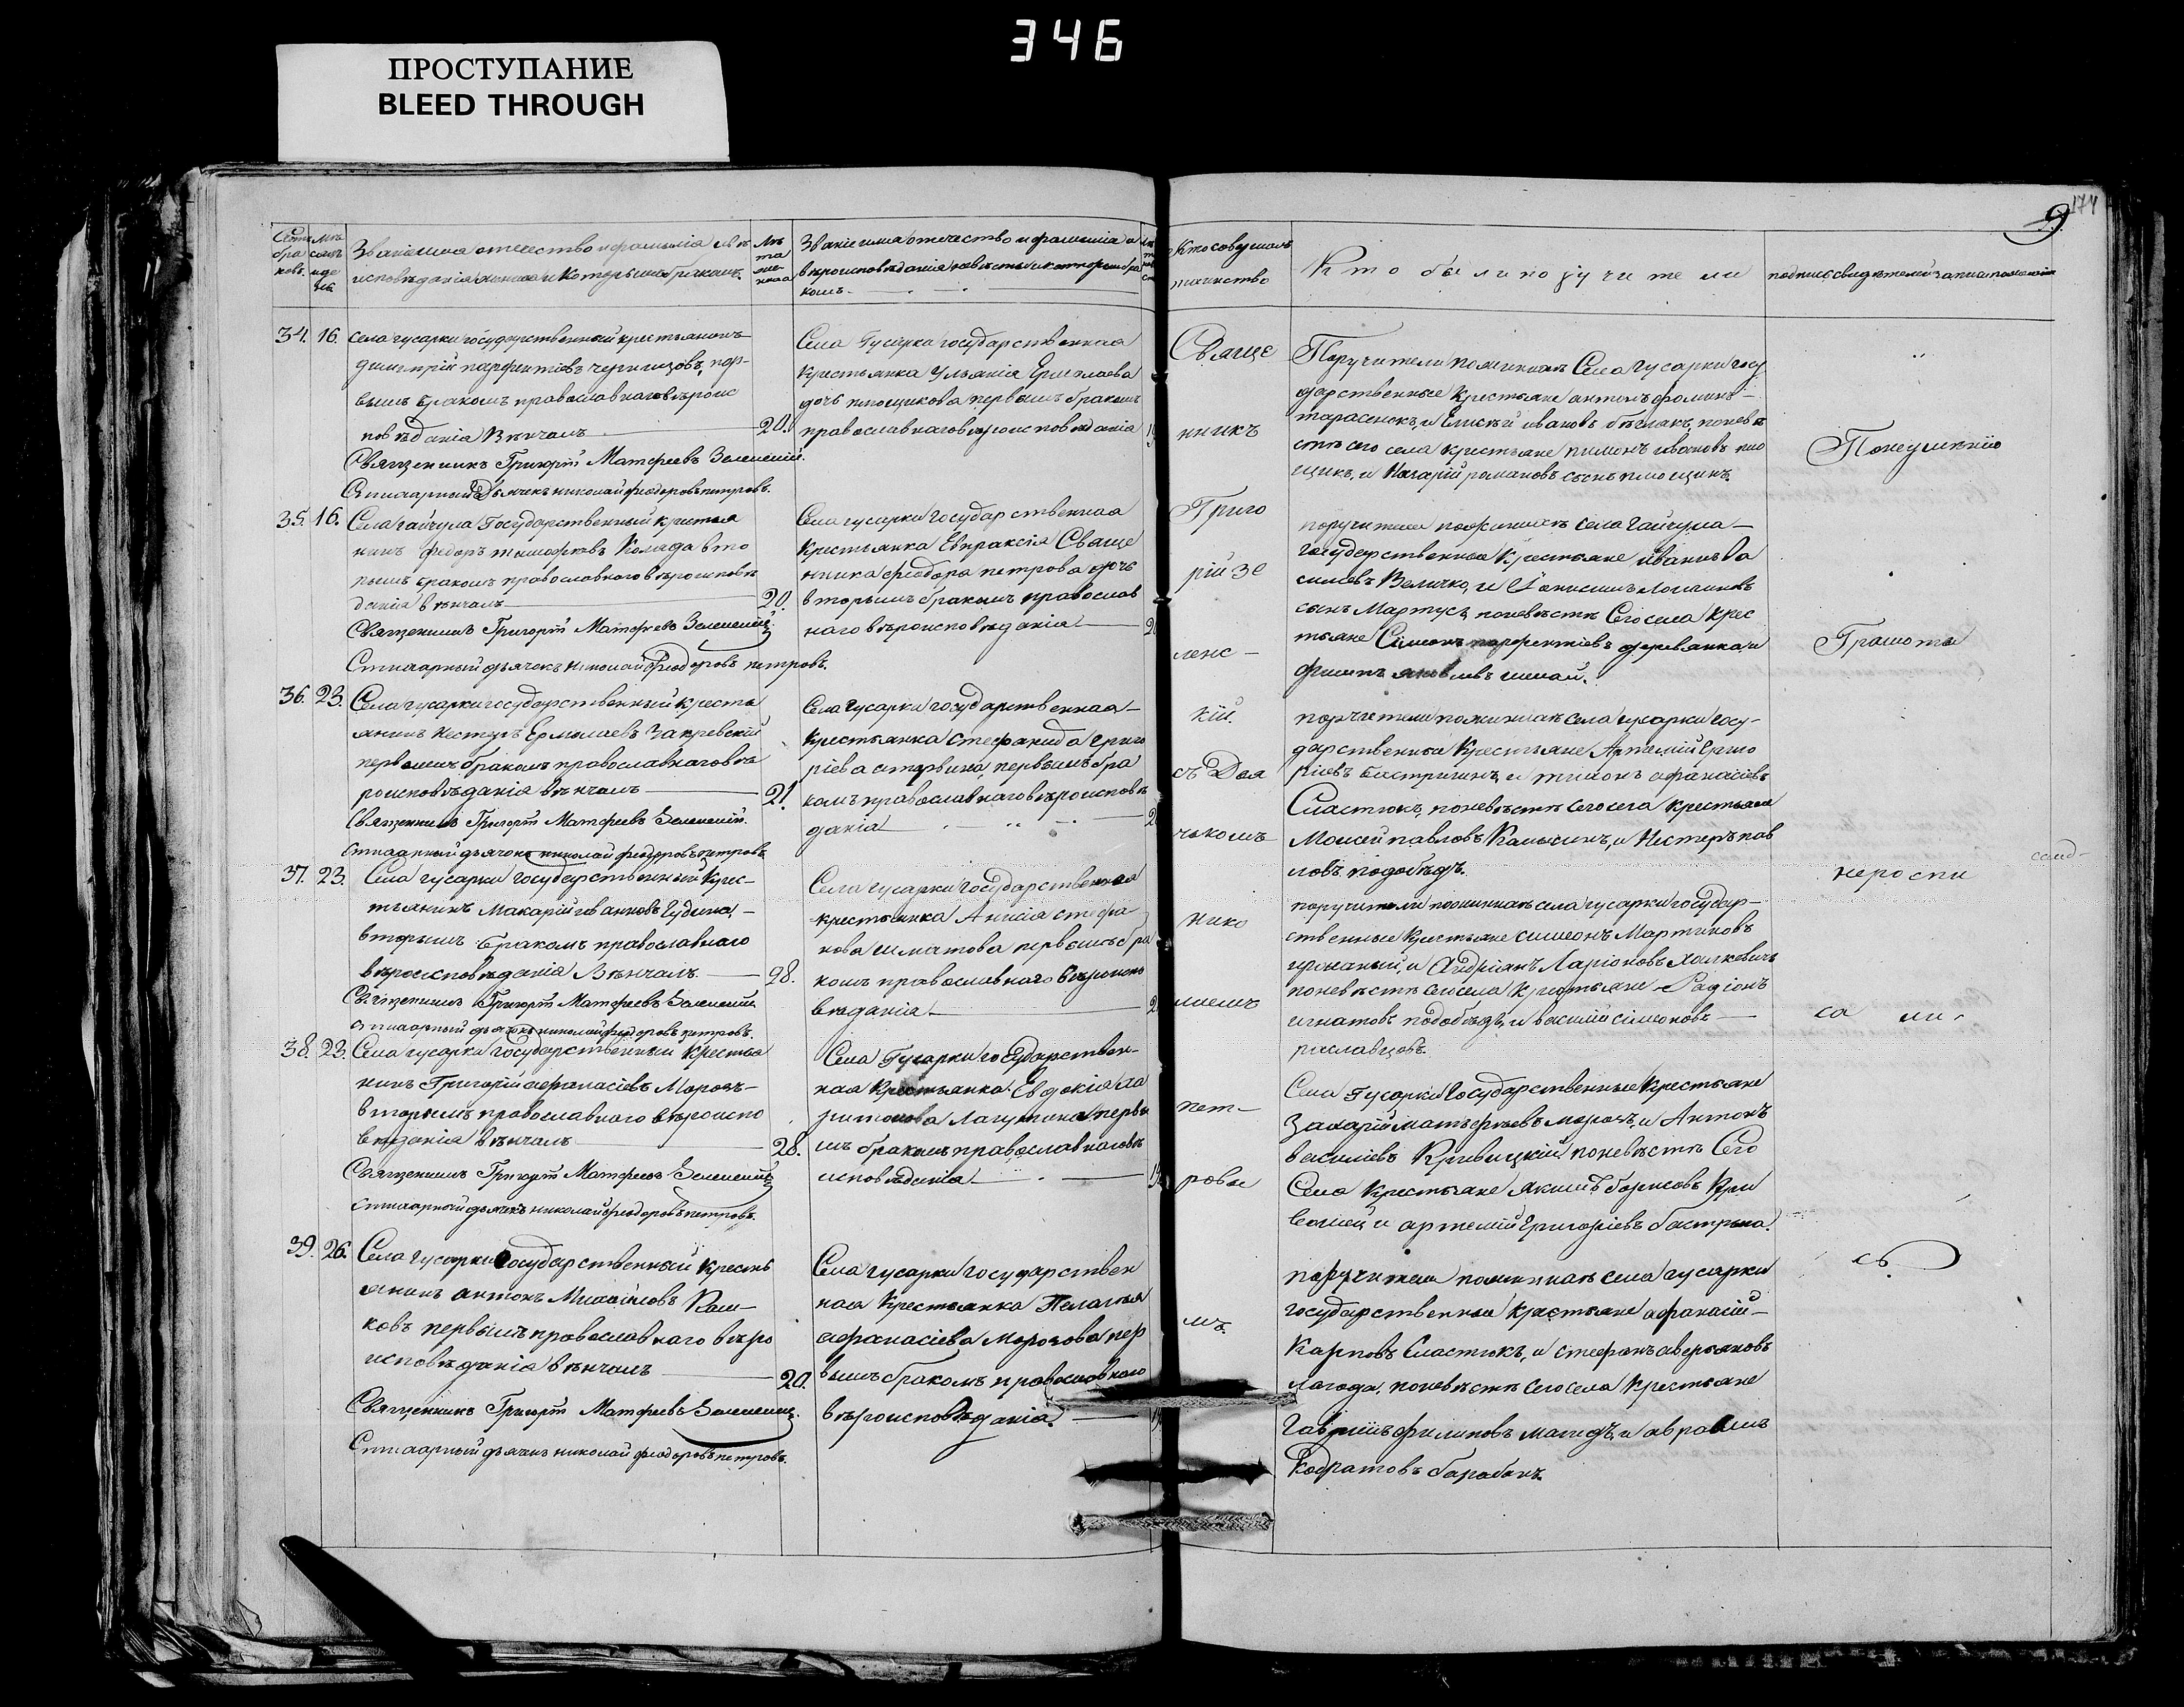 346
ПРОСТУПАНИЕ
BLEED THROUGH
174
9
Званіе имя отечество и фамилія
исповѣданія жениха и которымъ бракомъ
Лѣ
та
же
ниха
Званіе имя отечество и фамилія и
вѣроисповѣданія невѣсты и которымъ бра
комъ
Кто совершалъ
таинство
Кто были поручители
подпись свидѣтелей записи по желанію
34. 16. Села гусарки государственный крестьянинъ
димитрій парфентіевъ пер-
вымъ бракомъ православнаго вѣроис
повѣданія Вѣнчалъ 20.
Священникъ Григорій Матфеевъ Зеленскій.
Стихарный Дьячекъ николай феодоровъ петровъ.
Села Гусарка государственная
Крестьянка Ульянія Ермолаева
дочь плющикова первымъ бракомъ
православнаго вѣроисповѣданія
Поручители по женихѣ Села Гусарки госу
дарственные Крестьяне антонъ фоминъ
тарасенокъ, и Елисѣй ивановъ бѣглакъ, по невѣ
стѣ сего села крестьяне пименъ ивановъ плю
щикъ, и Макарій романовъ сынъ плющикъ.
35. 16. Села гайчула Государственный крестья
нинъ федоръ тимофѣевъ Коляда вто
рымъ бракомъ православнаго вѣроисповѣ
данія вѣнчалъ 20.
Священникъ Григорій Матфеевъ Зеленскій
Стихарный дьячекъ николай феодоровъ петровъ.
Села гусарки государственная
Крестьянка Евпраксія Свяще
нника феодора петрова дочь
вторымъ бракомъ православ
наго вѣроисповѣданія
поручители по женихѣ села гайчула
государственные Крестьяне иванъ Ва
силіевъ Величко, и
сынъ Мартусъ, по невѣстѣ Сего села Крес
тьяне Симеонъ парфентіевъ деревянка, и
филипъ яковлевъ
36. 23. Села гусарки государственный кресть
янинъ Несторъ Ермолаевъ Закревскій
первымъ бракомъ православнаго вѣ
роисповѣданія вѣнчалъ 21.
Священникъ Григорій Матфеевъ Зеленскій.
Стихарный дьячекъ николай феодоровъ петровъ
Села гусарки государственная
Крестьянка стефанида Григо
ріева первымъ бра
комъ православнаго вѣроисповѣ
данія
поручители по женихѣ села гусарки госу-
дарственные Крестьяне Артемій Григо
ріевъ Бастрыгинъ, и тихонъ афанасіевъ
Сластюкъ, по невѣстѣ сего села крестьяне
Моисей павловъ Камышинъ, и Нестеръ пав
ловъ подобѣдъ.
37. 23. Села гусарки государственный Крес-
тьянинъ Макарій ивановъ Гудина
вторымъ бракомъ православнаго
вѣроисповѣданія Вѣнчалъ 28.
Священникъ Григорій Матфеевъ Зеленскій
стихарный дьячекъ николай феодоровъ петровъ.
Села гусарки государственная
крестьянка Анисія стефа
нова шматова первымъ бра
комъ православнаго вѣроиспо
вѣданія
поручители по женихѣ села гусарки государ-
ственные Крестьяне симеонъ Мартиновъ
и Андріянъ Ларіоновъ
по невѣстѣ сего села Крестьяне Радіонъ
игнатовъ подобѣдъ, и василій симоновъ
38. 23. Села гусарки государственный Крестья
нинъ Григорій афанасіевъ Морозъ
вторымъ православнаго вѣроиспо
вѣданія вѣнчалъ 28.
Священникъ Григорій Матфеевъ Зеленскій
стихарный дьячекъ николай феодоровъ петровъ.
Села Гусарки государствен-
ная Крестьянка Евдокія
Лагутина первы
мъ бракомъ православнаго вѣ
исповѣданія
Села Гусарки Государственные Крестьяне
Захарій матфѣевъ морозъ, и Антонъ
василіевъ Кривицкій по невѣстѣ Сего
Села Крестьяне якимъ борисовъ Кри
и артемій Григоріевъ бастрыга.
39. 26. Села гусарки Государственный Кресть
янинъ антонъ Михайловъ
ковъ первымъ православнаго вѣро
исповѣданія вѣнчалъ 20.
Священникъ Григорій Матфеевъ Зеленскій.
Стихарный дьячекъ николай феодоровъ петровъ.
Села гусарки государствен
ная Крестьянка Пелагія
афанасіева Морозова пер
вымъ бракомъ православнаго
вѣроисповѣданія
поручители по женихѣ села гусарки
государственные крестьяне афанасій
Карповъ Сластюкъ, и стефанъ аверьяновъ
лагода, по невѣстѣ сего села Крестьяне
Гавріилъ филиповъ и авраамъ
Кодратовъ барабанъ.
Свяще
нникъ
Григо
рій Зе
ленс-
кій.
съ Дья
чькомъ
нико
лаемъ
пет-
ровы
мъ.
По неумѣнію
Грамоте
нероспи
са ли
сь.